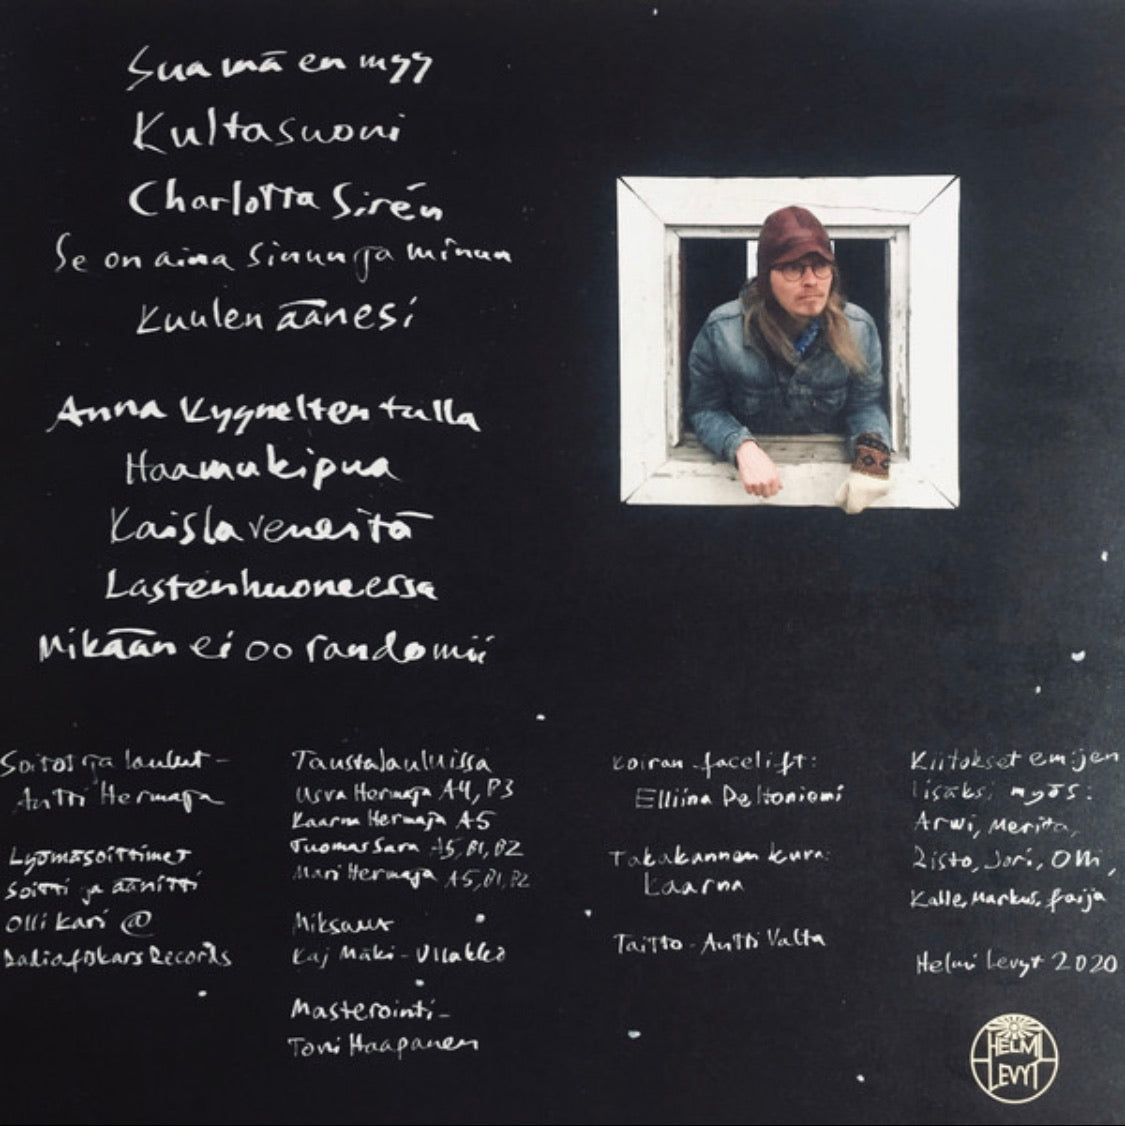 Sua mä en myy
Kultasuoni
Charlotta Sirén
Se on aina sinun ja minun
Kuulen äänesi
Anna Kyynelten tulla
Haamukipua
Kaislaveneitä
Lastenhuoneessa
Mikään ei oo randomii
Soitot ja laulut -
Antti Hermaja
Lyömäsoittimet
soitti ja äänitti
Olli Kari @
Radiofiskars Records
Taustalauluissa
Usva Hermaja A4, B3
Kaarna Hermaja A5
Tuomas Sara A5, B1, B2
Mari Hermaja A5, B1, B2
Miksaus
Kaj Mäki-Ullakko
Masterointi -
Toni Haapanen
Koiran facelift:
Elliina Peltoniemi
Takakannen kuva:
Kaarna
Taitto - Antti Valta
Kiitokset em:ijen
lisäksi myös:
Arwi, Merita,
Risto, Jori, Olli,
Kalle, Markus, faija
Helmi Levyt 2020
HELMI
LEVYT